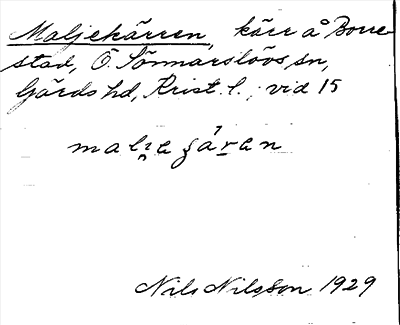 Maljekärren, kärr å Borre-
stad, Ö. Sönnarslövs sn,
Gärds hd, Krist. l.; vid 15
Nils Nilsson 1929